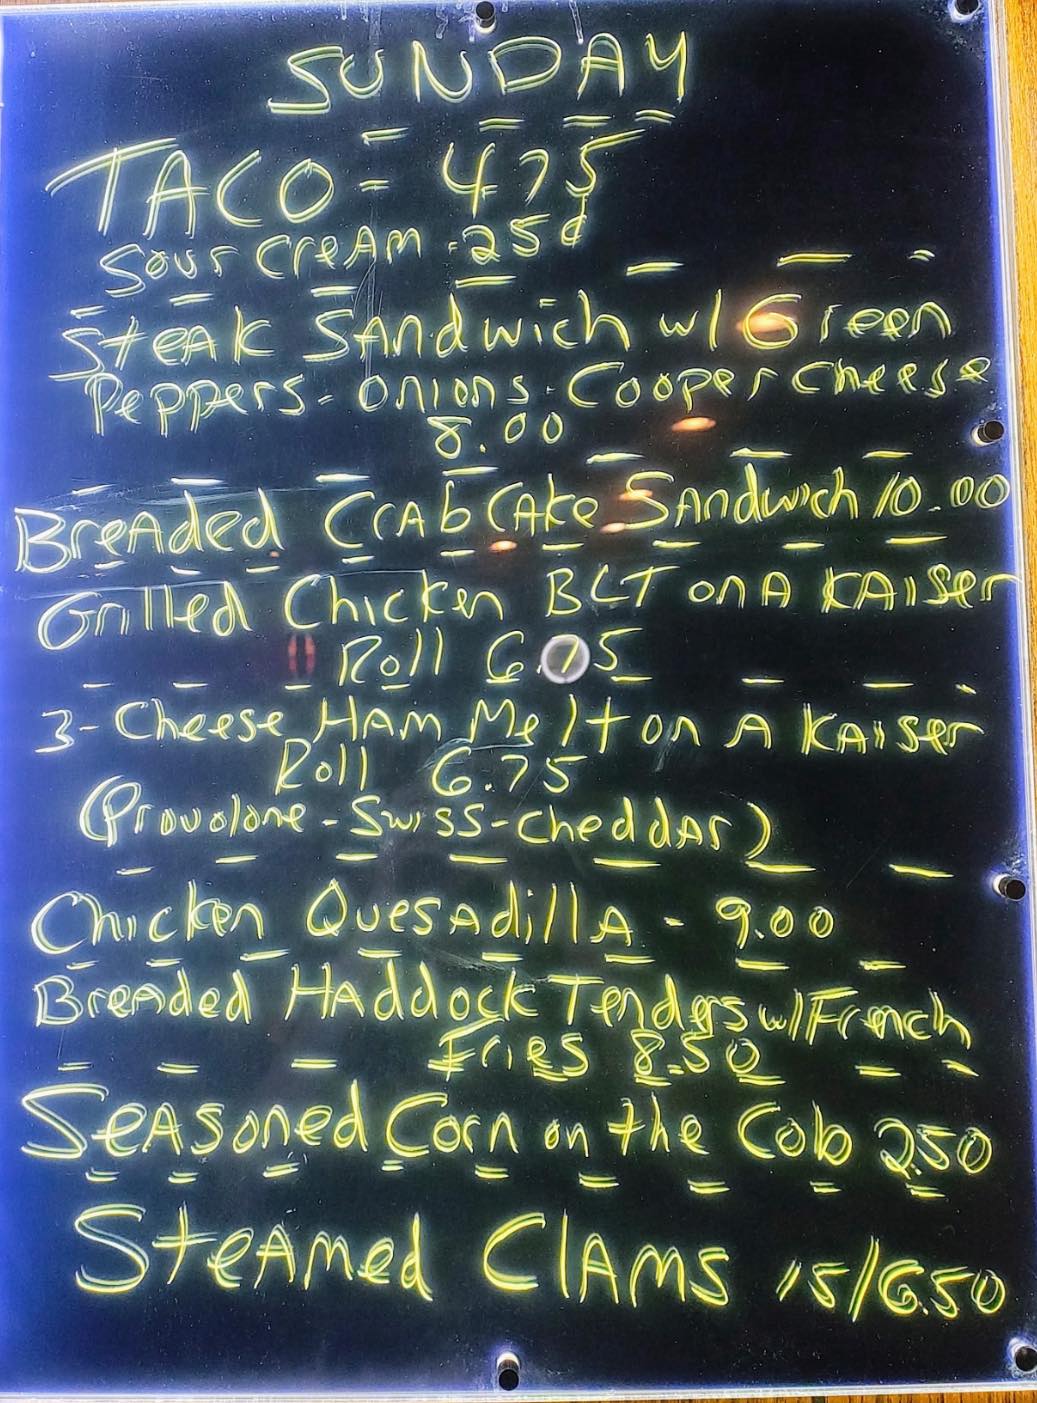 SUNDAY
TACO = 475
Sour Cream - 25¢
Steak Sandwich w/ Green
Peppers - Onions - Cooper Cheese
8.00
Breaded Crab Cake Sandwich 10.00
Grilled Chicken BLT on A Kaiser
Roll 6.75
3-Cheese Ham Melt on A Kaiser
Roll 6.75
(Provolone - Swiss - Cheddar)
Chicken Quesadilla - 9.00
Breaded Haddock Tenders w/French
Fries 8.50
Seasoned Corn on the Cob 2.50
Steamed Clams 15/6.50